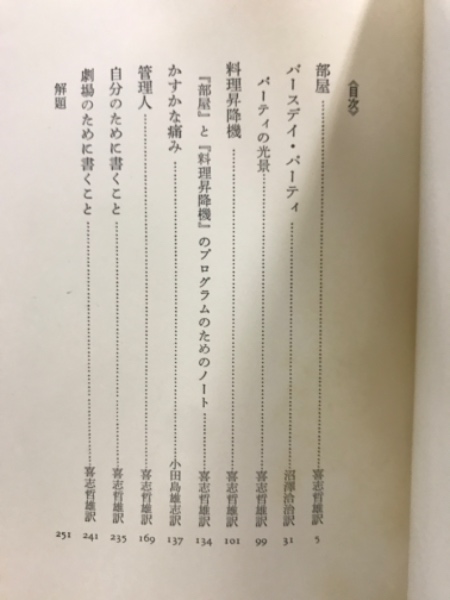 《目次》
部屋……………喜志哲雄訳 5
バースデイ・パーティ……………沼澤洽治訳 31
パーティの光景……………喜志哲雄訳 99
料理昇降機……………喜志哲雄訳 101
『部屋』と『料理昇降機』のプログラムのためのノート……………喜志哲雄訳 134
かすかな痛み……………小田島雄志訳 137
管理人……………喜志哲雄訳 169
自分のために書くこと……………喜志哲雄訳 235
劇場のために書くこと……………喜志哲雄訳 241
解題 251